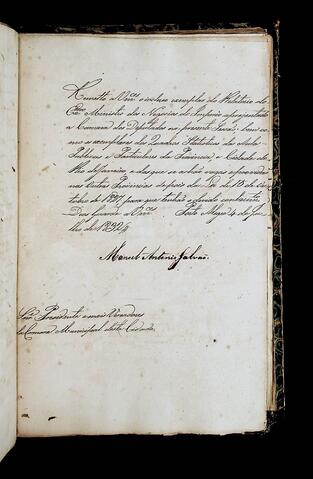 Remetto a Vmces o incluso exemplar do Relatorio do
Exmo Ministro dos Negocios do Imperio apresentado
a Camara dos Deputados na presente Sessão, bem co
mo os exemplares dos Quadros Statisticos das Aulas
Publicas e Particulares da Provincia e Cidade do
Rio de Janeiro e das que se achão vagas e providas
nas Outras Provincias depois da Lei de 15 de Ou
tubro de 1827, para que tenhão a devida
Deos Guarde a Vmces Porto Alegre 4 de Ju
lho de 1832
Manoel Antonio Galvão.
Snres Presidente e mais Vereadores
da Camara Municipal desta Cidade.